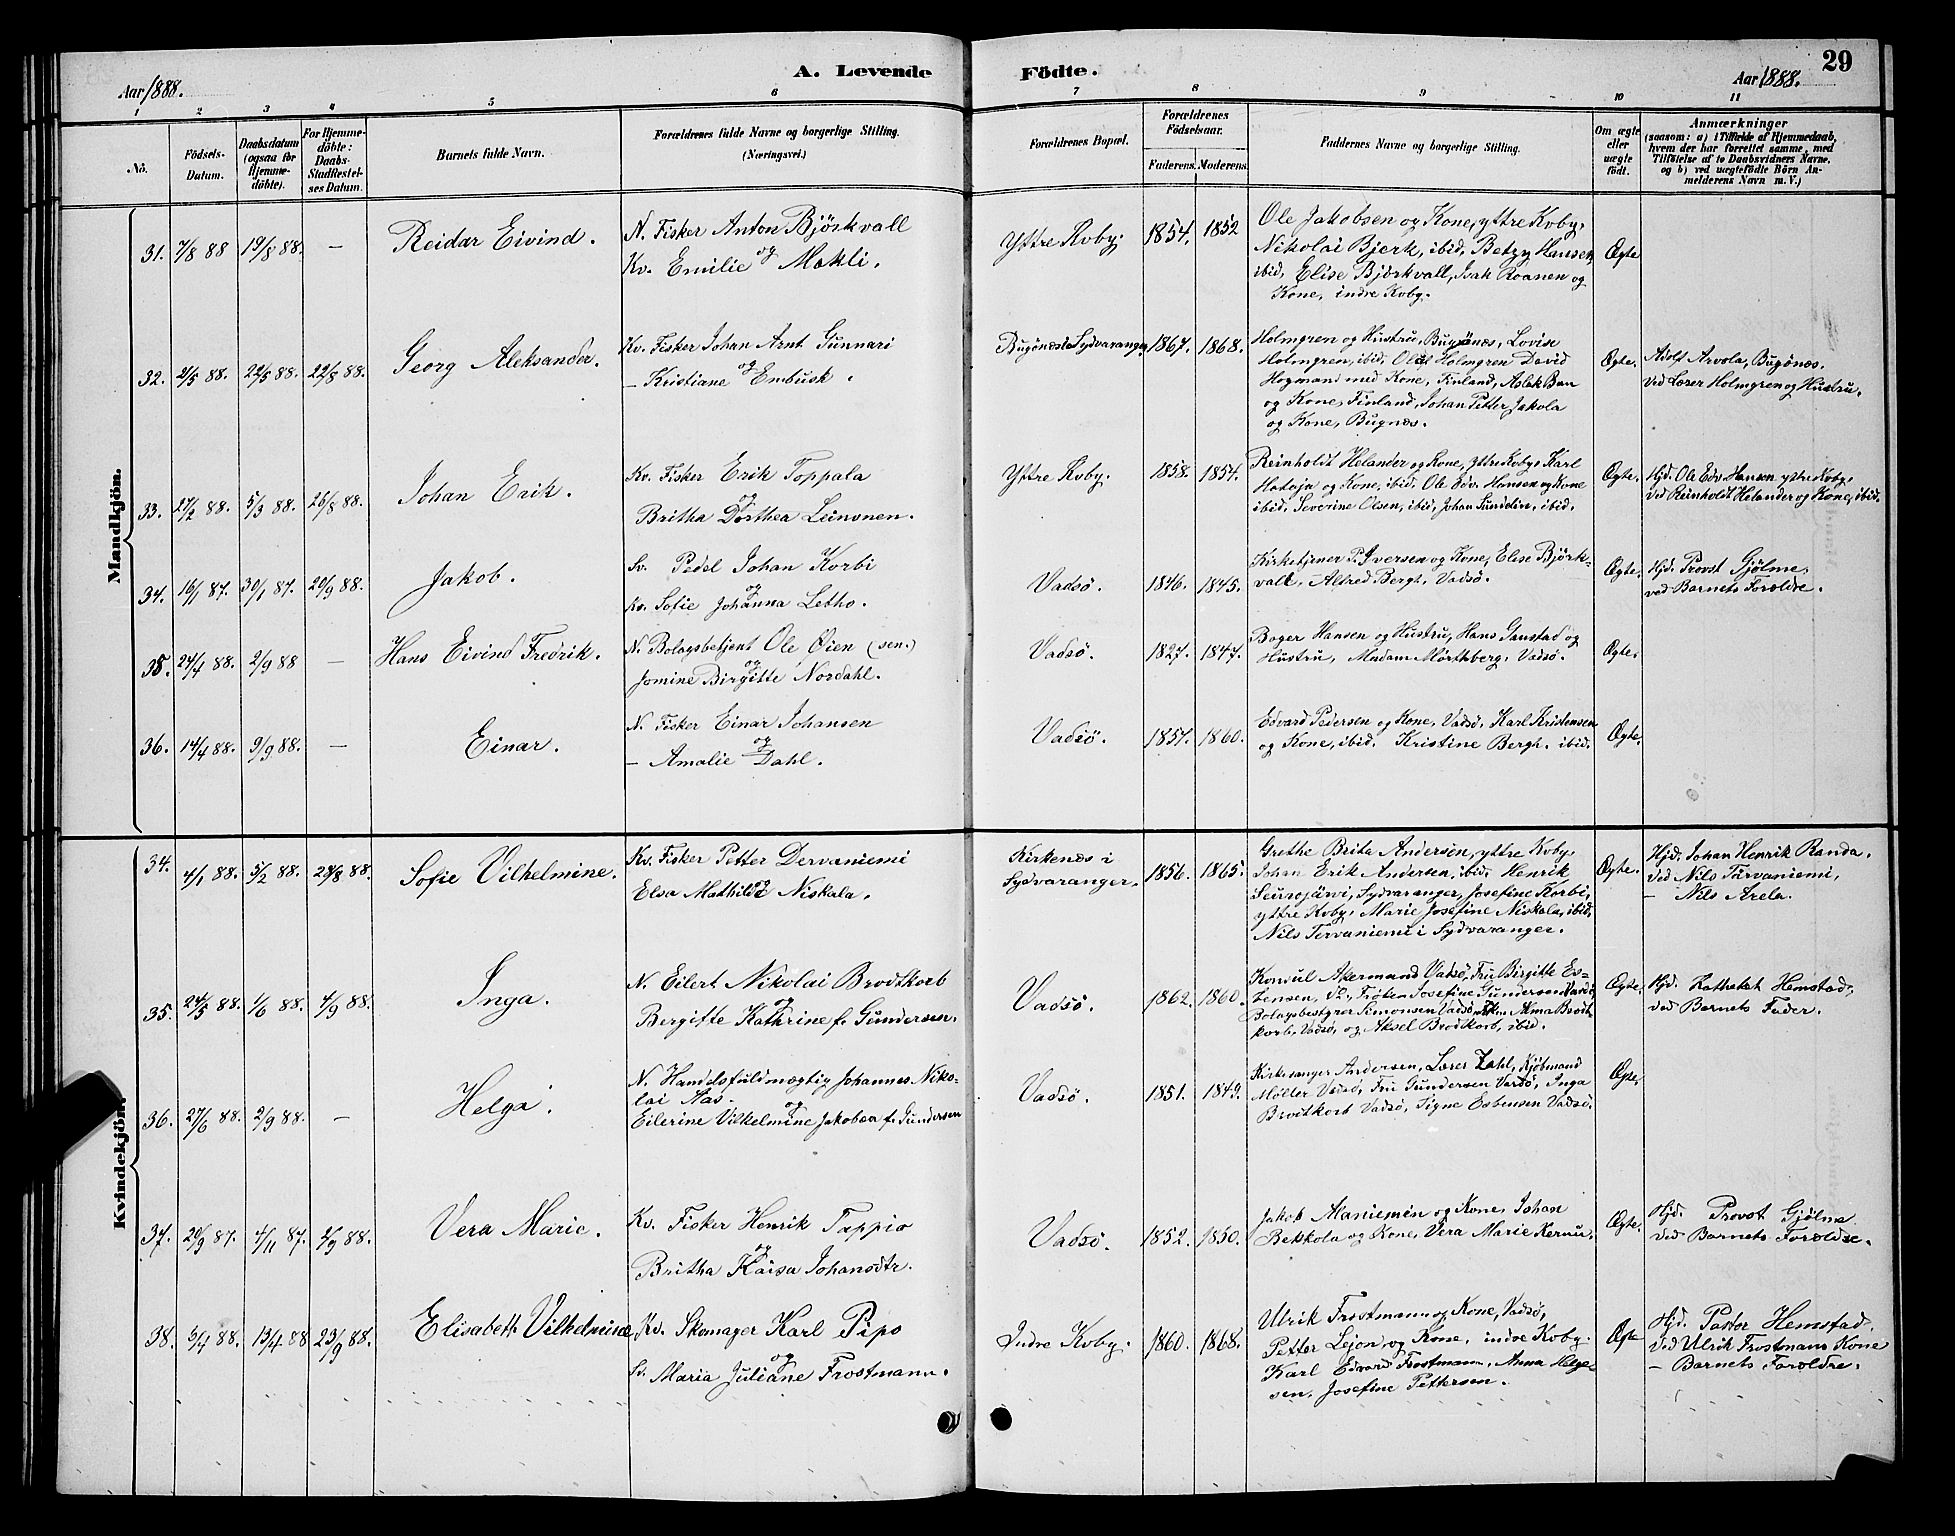 A. Levende Födte.
29
Aar 1888.
Aar 1888.
1 2 3 4 5 6 7 8 9 10 11
No.
Födsels-Datum.
Daabsdatum (ogsaa for Hjemme-döbte).
For Hjemme-döbte: Daabs-Stadfestel-ses Datum.
Barnets fulde Navn.
Forældrenes fulde Navne og borgerlige Stilling.
(Næringsvei.)
Forældrenes Bopæl.
Forældrenes Födselsaar.
Faderens. Moderens.
Faddernes Navne og borgerlige Stilling.
Om ægte eller uægte födt.
Anmærkninger
(saasom: a) i Tilfælde af Hjemmedaab, hvem der har forrettet samme, med Tilföielse af to Daabsvidners Navne, og b) ved uægtefödte Börn Anmelderens Navn m. V.)
Mandkjön.
31. 7/8 88 19/8 88. — Reidar Eivind.
N. Fisker Anton Bjørkvall
og
Kv. Emilie Mokli.
Yttre Kvby. 1854. 1852
Ole Jakobsen og Kone, yttre Kvby,
Nikolai Bjerk, ibid, Betzy Hansen,
ibid, Elise Bjørkvall, Isak Roanen og
Kone, indre Kvby.
Ægte
32. 2/5 88. 22/5 88. 22/8 88. Georg Aleksander.
Kv. Fisker Johan Arnt Gunnari
og
— Kristiane Embusk.
Bugönes i Sydvaranger 1867. 1868.
Holmgren og Hustru, Bugönes, Lovise
Holmgren, ibid, Olof Holmgren David
Hogmand med Kone, Finland, Aslak Ban
og Kone, Finland, Johan Petter Jakola
og Kone, Bugnæs.
Ægte.
Adolf Arvola, Bugönæs.
Ved Lærer Holmgren og Hustru.
33. 27/2 88. 5/3 88. 26/8 88. Johan Erik.
Kv. Fisker Erik Toppala
og
Britha Dorthea Leinonen.
Yttre Kvby. 1858. 1854.
Reinholdt Helander og Kone, yttre Kvby, Karl
Hataja og Kone, ibid. Ole Edv. Hansen og Kone
ibid, Severine Olsen, ibid, Johan Sundelin, ibid.
Ægte.
Hjd. Ole Edv. Hansen yttre Kvby,
ved Reinholdt Helander og Kone, ibid.
34. 16/1 87. 30/1 87. 20/9 88. Jakob.
Sv. Pedel Johan Korbi
og
Kv. Sofie Johanna Letho.
Vadsö. 1846. 1845.
Kirketjener P. Iversen og Kone, Elise Björk-
vall, Alfred Bergh, Vadsö.
Ægte.
Hjd. Provst Gjölme,
ved Barnets Forældre.
35. 24/4 88. 2/9 88 — Hans Eivind Fredrik.
N. Bolagsbetjent Ole Öien (sen.)
og
Jomine Birgitte Nordahl.
Vadsö. 1827. 1847.
Boger Hansen og Hustru, Hans Ganstad og
Hustru, Madam Mörthberg, Vadsö.
Ægte.
36. 14/4 88. 9/9 88. — Einar.
N. Fisker Einar Johansen
og
— Amalie Dahl.
Vadsö. 1857. 1860.
Edvard Pedersen og Kone, Vadsö. Karl Kristensen
og Kone, ibid. Kristine Bergh. ibid.
Ægte.
Kvindekjön.
34. 4/1 88. 5/2 88. 28/8 88. Sofie Vilhelmine.
Kv. Fisker Petter Dervaniemi
og
Elsa Mathilde Niskala.
Kirkenes i
Sydvaranger. 1856. 1865.
Grethe Brita Andersen, yttre Kvby,
Johan Erik Andersen, ibid. Henrik
Seurojärvi, Sydvaranger, Josefine Korbi,
yttre Kvby, Marie Josefine Niskala, ibid,
Nils Tervaniemi i Sydvaranger.
Ægte.
Hjd. Johan Henrik Randa.
Ved Nils Tärvaniemi,
— Nils Arela.
35. 24/5 88. 1/6 88. 4/9 88. Inga.
N. Eilert Nikolai Brodtkorb
og
Bergitte Kathrine f. Gundersen.
Vadsö. 1862. 1860.
Konsul Akermand Vadsö, Fru Birgitte Es-
bensen, V., Fröken Josefine Gundersen Vadsö,
Bolagsbestyrer Simonsen Vadsö, Alma Brodt-
korb, Vadsö, og Aksel Brodtkorb, ibid.
Ægte.
Hjd. Kathekat Hemstad,
ved Barnets Fader.
36. 27/6 88. 2/9 88. — Helga.
N. Handelsfuldmægtig Johannes Niko-
lai Aas.
og
Eilerine Vilhelmine Jakobea f. Gundersen
Vadsö. 1851. 1849.
Kirkesanger Andersen, Lærer Zahl, Kjöbmand
Möller Vadsö, Fru Gundersen Vadsö, Inga
Brodtkorb Vadsö, Signe Esbensen Vadsö.
Ægte.
37. 20/9 87. 4/11 87. 2/9 88. Vera Marie.
Kv. Fisker Henrik Tappio
og
Britha Kaisa Johansdtr.
Vadsö. 1852. 1850.
Jakob Maniemen og Kone, Johan
Bekkola og Kone, Vera Marie Kernu.
Ægte.
Hjd. Provst Gjölme
Ved Barnets Forældre.
38. 5/4 88. 13/4 88 23/9 88. Elisabeth Vilhelmine.
Kv. Skomager Karl Pipo
og
Sv. Maria Juliane Frostmann.
Indre Kvby. 1860. 1868.
Ulrik Frostmann og Kone, Vadsö,
Petter Lejon og Kone, indre Kvby.
Karl Edvard Frostmann, Anna Helge-
sen, Josefine Pettersen.
Ægte
Hjd. Pastor Hemstad.
Ved Ulrik Frostmans Kone
— Barnets Forældre.